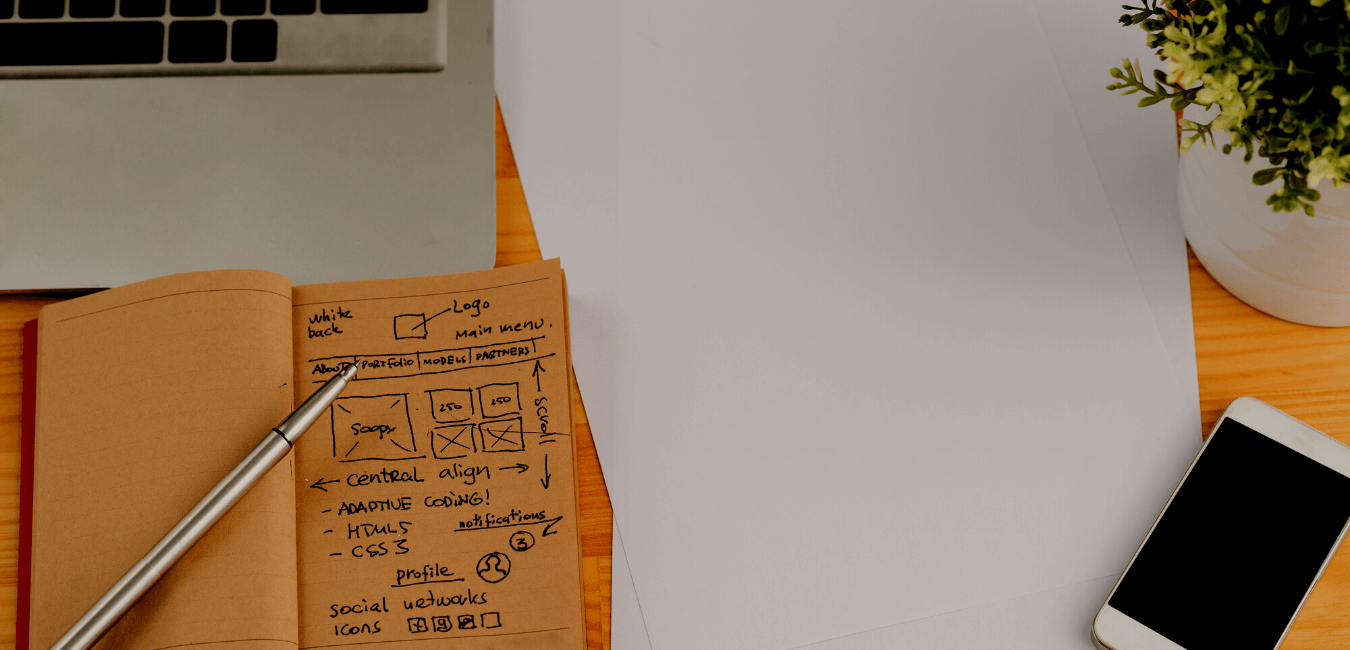 white
back
Logo
Main menu.
ABOUT PORTFOLIO MODELS PARTNERS
250 250
500px
scroll
CENTRAL align
- ADAPTIVE CODING!
- HTML5
- CSS3
notifications
3
profile
social networks
icons